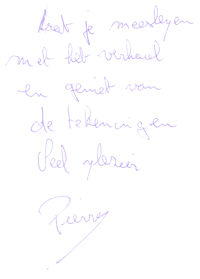 Laat je meeslepen
met het verhaal
en geniet van
de tekeningen
Veel plezier
Pierre